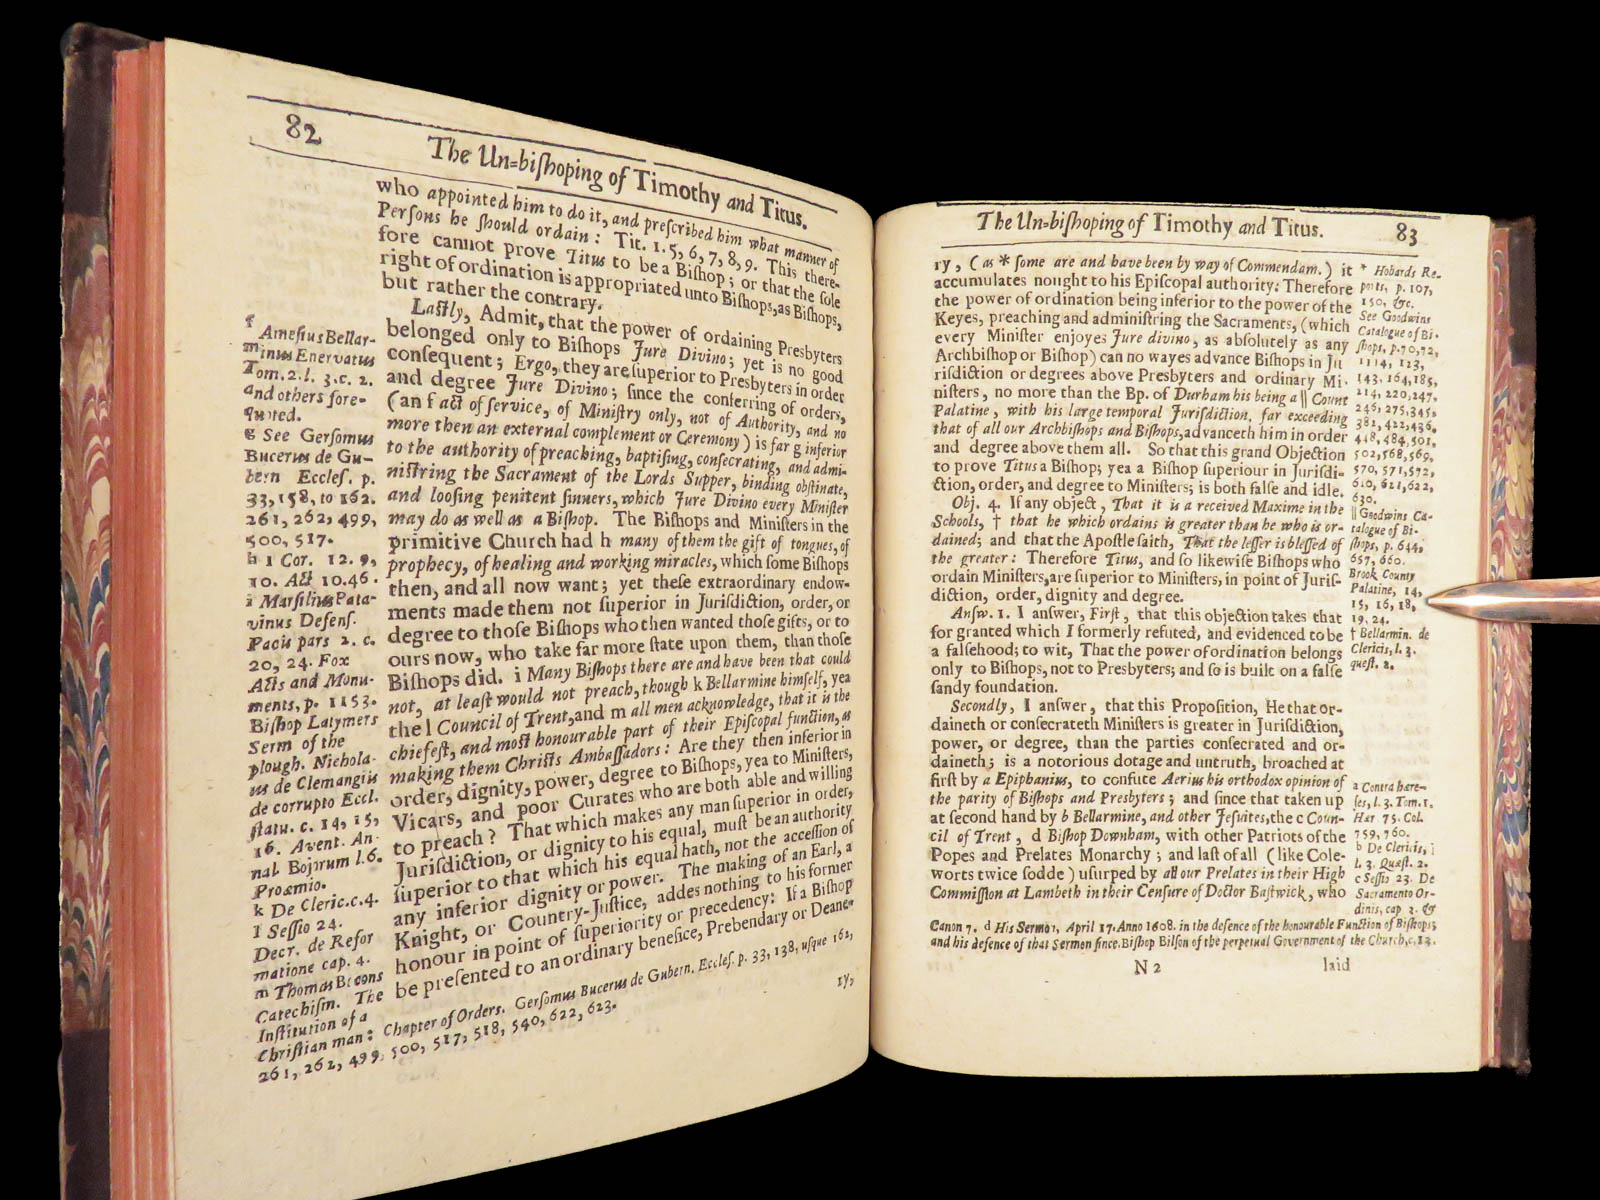 82
The Un=biſhoping of Timothy and Titus.
who appointed him to do it, and preſcribed him what manner of
Perſons he ſhould ordain: Tit. 1. 5, 6, 7, 8, 9. This there-
fore cannot prove Titus to be a Biſhop; or that the ſole
right of ordination is appropriated unto Biſhops, as Biſhops,
but rather the contrary.
Laſtly, Admit, that the power of ordaining Presbyters
belonged only to Biſhops Jure Divino; yet is no good
conſequent; Ergo, they are ſuperior to Presbyters in order
and degree Jure Divino; ſince the conferring of orders,
(an f act of ſervice, of Miniſtry only, not of Authority, and no
more then an external complement or Ceremony) is far g inferior
to the authority of preaching, baptiſing, conſecrating, and admi-
niſtring the Sacrament of the Lords Supper, binding obſtinate,
and looſing penitent ſinners, which Jure Divino every Miniſter
may do as well as a Biſhop. The Biſhops and Miniſters in the
primitive Church had h many of them the gift of tongues, of
prophecy, of healing and working miracles, which ſome Biſhops
then, and all now want; yet theſe extraordinary endow-
ments made them not ſuperior in Jurisdiction, order, or
degree to thoſe Biſhops who then wanted thoſe gifts, or to
ours now, who take far more ſtate upon them, than thoſe
Biſhops did. i Many Biſhops there are and have been that could
not, at leaſt would not preach, though k Bellarmine himſelf, yea
the l Council of Trent, and m all men acknowledge, that it is the
chiefeſt, and moſt honourable part of their Epiſcopal function, as
making them Chriſts Ambaſſadors: Are they then inferior in
order, dignity, power, degree to Biſhops, yea to Miniſters,
Vicars, and poor Curates who are both able and willing
to preach? That which makes any man ſuperior in order,
Juriſdiction, or dignity to his equal, muſt be an authority
ſuperior to that which his equal hath, not the acceſſion of
any inferior dignity or power. The making of an Earl, a
Knight, or Country-Juſtice, addes nothing to his former
honour in point of ſuperiority or precedency: If a Biſhop
be preſented to an ordinary benefice, Prebendary or Deane-
ry,
f
Ameſius Bellar-
minus Enervatus
Tom. 2. l. 3. c. 2.
and others fore-
quoted.
g See Gerſomus
Bucerus de Gu-
bern Eccleſ. p.
33, 158, to 162.
261, 262, 499,
500, 517.
h 1 Cor. 12. 9,
10. Act 10. 46.
i Marſilius Pata-
vinus Defenſ.
Pacis pars 2. c.
20, 24. Fox
Acts and Monu-
ments, p. 1153.
Biſhop Latymers
Serm of the
plough. Nichola-
us de Clemangiis
de corrupto Eccl.
ſtatu. c. 14, 15,
16. Avent. An-
nal. Bojorum l. 6.
Proæmio.
k De Cleric. c. 4.
l Seſſio 24.
Decr. de Refor
matione cap. 4.
m Thomas Becons
Catechiſm. The
Inſtitution of a
Chriſtian man: Chapter of Orders. Gerſomus Bucerus de Gubern. Eccleſ. p. 33, 138, uſque 162,
261, 262, 499, 500, 517, 518, 540, 622, 623.
The Un=biſhoping of Timothy and Titus.
83
ry, (as * ſome are and have been by way of Commendam.) it
accumulates nought to his Epiſcopal authority: Therefore
the power of ordination being inferior to the power of the
Keyes, preaching and adminiſtring the Sacraments, (which
every Miniſter enjoyes Jure divino, as abſolutely as any
Archbiſhop or Biſhop) can no wayes advance Biſhops in Ju
riſdiction or degrees above Presbyters and ordinary Mi-
niſters, no more than the Bp. of Durham his being a || Count
Palatine, with his large temporal Juriſdiction, far exceeding
that of all our Archbiſhops and Biſhops, advanceth him in order
and degree above them all. So that this grand Objection
to prove Titus a Biſhop; yea a Biſhop ſuperiour in Juriſdi-
ction, order, and degree to Miniſters; is both falſe and idle.
Obj. 4. If any object, That it is a received Maxime in the
Schools, † that he which ordains is greater than he who is or-
dained; and that the Apoſtle ſaith, That the leſſer is bleſſed of
the greater: Therefore Titus, and ſo likewiſe Biſhops who
ordain Miniſters, are ſuperior to Miniſters, in point of Juriſ-
diction, order, dignity and degree.
Anſw. 1. I anſwer, Firſt, that this objection takes that
for granted which I formerly refuted, and evidenced to be
a falſehood; to wit, That the power of ordination belongs
only to Biſhops, not to Presbyters; and ſo is built on a falſe
ſandy foundation.
Secondly, I anſwer, that this Propoſition, He that or-
daineth or conſecrateth Miniſters is greater in Juriſdiction,
power, or degree, than the parties conſecrated and or-
daineth; is a notorious dotage and untruth, broached at
firſt by a Epiphanius, to confute Aerius his orthodox opinion of
the parity of Biſhops and Presbyters; and ſince that taken up
at second hand by b Bellarmine, and other Jeſuites, the c Coun-
cil of Trent, d Biſhop Downham, with other Patriots of the
Popes and Prelates Monarchy; and laſt of all (like Cole-
worts twice ſodde) uſurped by all our Prelates in their High
Commiſſion at Lambeth in their Cenſure of Doctor Baſtwick, who
* Hobards Re-
ports, p. 107,
150, &c.
See Goodwins
Catalogue of Bi-
ſhops, p. 70, 72,
1114, 123,
143, 164, 185,
214, 220, 247,
246, 275, 345,
381, 422, 436,
448, 484, 501,
502, 568, 569,
570, 571, 572,
610, 621, 622,
630.
|| Goodwins Ca-
talogue of Bi-
ſhops, p. 644,
657, 660.
Brook County
Palatine, 14,
15, 16, 18,
19, 24.
† Bellarmin. de
Clericis, l. 3.
queſt. 2.
a Contra hære-
ſes, l. 3. Tom. 1.
Hær. 75. Col.
759, 760.
b De Clericis,
l. 3. Quæſt. 2.
c Seſſio 23. De
Sacramento Or-
dinis, cap. 3. &
Canon 7. d His Sermon, April 17. Anno 1608. in the defence of the honourable Function of Biſhops;
and his defence of that Sermon ſince. Biſhop Bilſon of the perpetual Government of the Church, c. 13.
N 2
laid